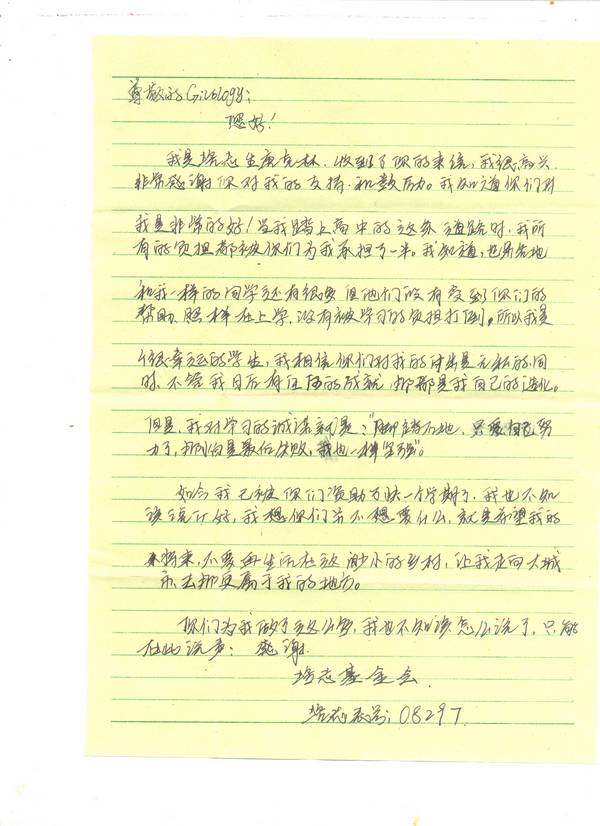 尊敬的Gicology:
您好!
我是培志生康克林,收到了你的来信,我很高兴
非常感谢你对我的支持和鼓励。我知道你们对
我是非常的好!当我踏上高中的这条道路时,我所
有的负担都被你们为我承担了一半。我知道,也
和我一样的同学还有很多 但他们没有受到你们的
帮助,照样在上学,没有被学习的负担打倒。所以我是
很幸运的学生,我相信你们对我的付出是无私的,同
时,不管我日后有任何的成就,那都是我自己的造化。
但是,我对学习的诚诺就是:"脚踏石地,只要自己努
力了,哪怕是最后失败,我也一样坚强"。
如今我已被你们资助了快一个学期了,我也不知
该说什么,我想你们并不想要什么,就是希望我的
将来,不要再生活在这渺小的乡村,让我走向大城
市,去那更属于我的地方。
你们为我做了这么多,我也不知该怎么说了,只能
在此说声:感谢
培志基金会
培志号:08297